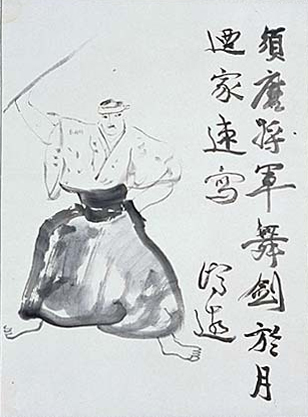 須磨将軍舞剣於月
廼家速写